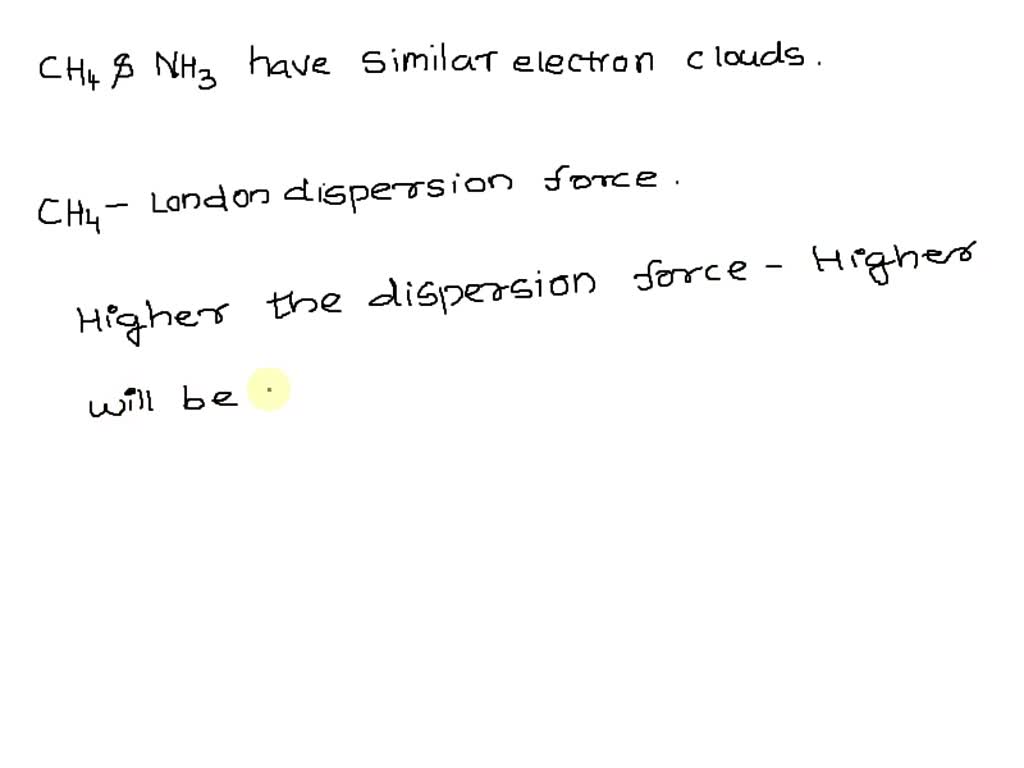 CH₄ & NH₃ have similar electron clouds.
CH₄ - London dispersion force.
Higher the dispersion force - Higher
will be